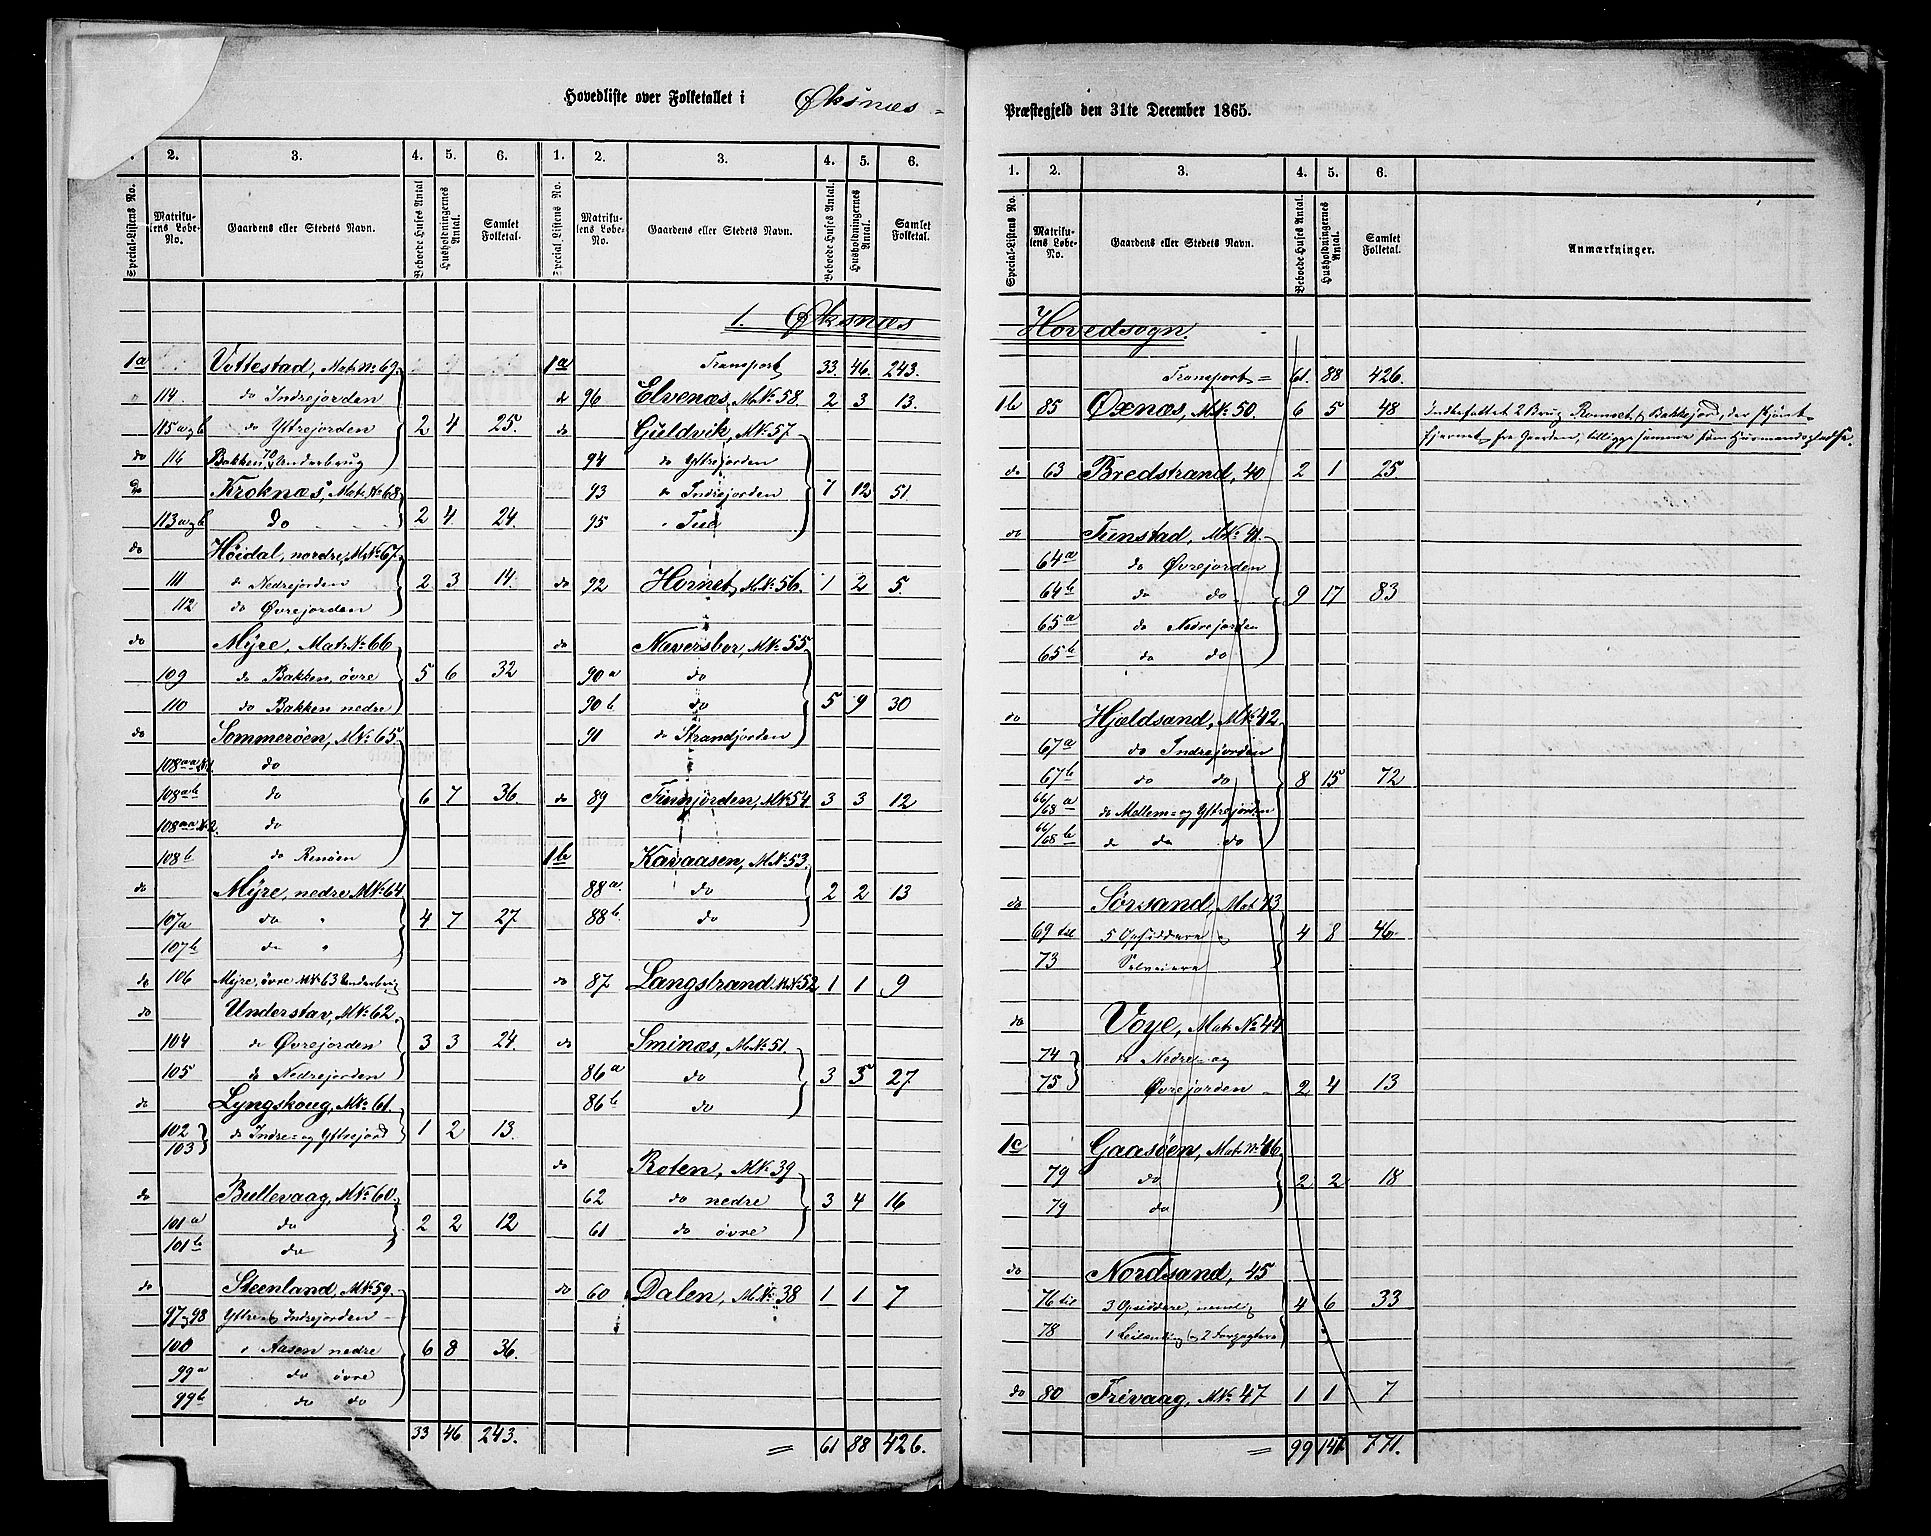 Hovedliste over Folketallet i Øksnæs
1.
2. Matrikulens Løbe-No.
3. Gaardens eller Stedets Navn.
4. Beboede Huses Antal
5. Husholdningernes Antal.
6. Samlet Folketal.
Special-Listens No.
1. Øksnæs
1a Vottestad, Matr. No 69.
114. do Indrejorden
115 a og b do Yttrejorden 2 4 25.
do 116 Bakken 70 Underbrug
do Kroknæs, Matr. No 68
113 a og b Do 2 4 24.
do Höidal, nordre, M.No 67.
111 do Nedrejorden 2 3 14.
112 do Øvrejorden
do Mÿre, Matr. No 66
109 do Bakken, övre 5 6 32
110 do Bakken nedre
do Sommeröen, M.No 65.
108aa No 1. do
108ab do 6 7 36.
108aa No 2. do
108b do Renöen
do Mÿre, nedre M.No 64
107a do " 4 7 27
107b do "
do 106 Mÿre, øvre M.No 63 Underbrug
do Understav, M.No 62.
104 do Øvrejorden 3 3 24.
105 do Nedrejorden
do Lyngskoug, M.No 61.
102 103 do Indre- og Yttrejord 1 2 13.
do Bullevaag, M.No 60.
101a do 2 2 12
101b do
do Steenland, M.No 59.
97 og 98 Yttre og Indrejorden
100 " Aasen nedre 6 8 36.
99a do övre
99b do do
33 46 243.
1. Special-Listens No.
2. Matrikulens Løbe-No.
3. Gaardens eller Stedets Navn.
4. Beboede Huses Antal.
5. Husholdningernes Antal.
6. Samlet Folketal.
1a Transport 33. 46. 243.
do 96 Elvenæs, M.No 58. 2 3 13.
do Guldvik, M.No 57.
94 do Yttrejorden
93 do Indrejorden 7 12 51.
95 "
do 92 Hornet, M.No 56. 1 2 5.
do Næversbor, M.No 55
90a do
90b do 5 9 30
91 do Strandjorden
do 89 Finnjorden, M.No 54 3 3 12
1b Kavaasen, M.No 53.
88a. do 2 2 13
88b. do
do 87 Langstrand M.No 52 1 1 9
do Sminæs, M.No 51.
86a do 3 5 27
86b do
do Roten, M.No 39
62 do nedre 3 4 16
61 do övre
do 60 Dalen, M.No 38 1 1 7
= 61 88 426.
Præstegjeld den 31te December 1865.
1. Special-Listens No.
2. Matrikulens Løbe-No.
3. Gaardens eller Stedets Navn.
4. Beboede Huses Antal.
5. Husholdningernes Antal.
6. Samlet Folketal.
Anmærkninger.
Hovedsogn.
Transport = 61. 88 426.
1b 85 Øxnæs, M.No 50. 6 5 48 Indbefattet 2 Brug Romset og Bakkejord, der skjönt
fjernet fra Gaarden, tilligge samme som Husmandspladse.
do 63 Bredstrand, 40 2 1 25.
do Tunstad, M.No 41.
64a do Øvrejorden
64b do do 9 17 83
65a do Nedrejorden
65b do do
do Hjeldsand, M.No 42
67a do Indrejorden
67b do do 8 15 72
66/68a do Mellem- og Yttrejorden
66/68b do do do
do Sörsand, Mat. 43
69 til 5 Opsiddere 4 8 46
73 Selveiere
do Voye, Matr. No 44
74 do Nedre- og
75 Øvrejorden 2 4 13
1c Gaasöen, Matr. No 46
79 do 2 2 18
79 do
do Nordsand, 45
76 til 3 Opsiddere, 4 6 33
78 1 Leilending og 2 Forpagtere
do 80 Trivaag, M.No 47 1 1 7
= 99 147 771.